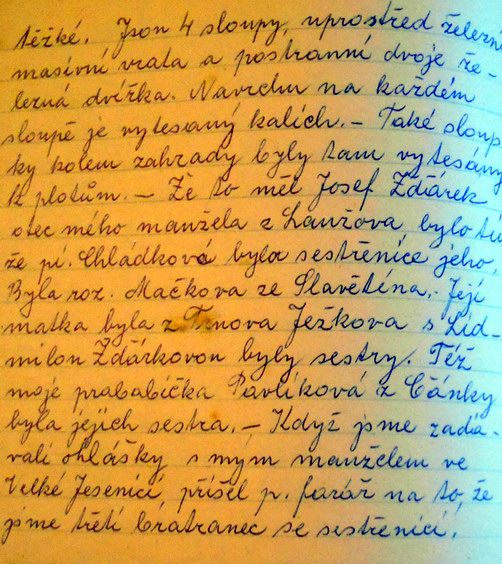 těžké. Json 4 sloupy, uprostřed železní
masivní vrata a postranní dvoje že-
lezná dvířka. Navrchu na každém
sloupě je vytesaný kalich. – Také sloup-
ky kolem zahrady byly tam vytesány
k plotům. – Že to měl Josef Žďárek
otec mého manžela z Lanžova, bylo tu
že pí. Chládková byla sestřenice jeho.
Byla roz. Mačkova ze Slavětína. Její
matka byla z Trnova Ježkova s Lid-
milou Žďárkovou byly sestry. Též
moje prababička Pavlíková z Čánky
byla jejich sestra. – Když jsme zadá-
vali ohlášky s mým manželem ve
Velké Jesenici, přišel p. farář na to, že
jsme třetí bratranec se sestřenicí.